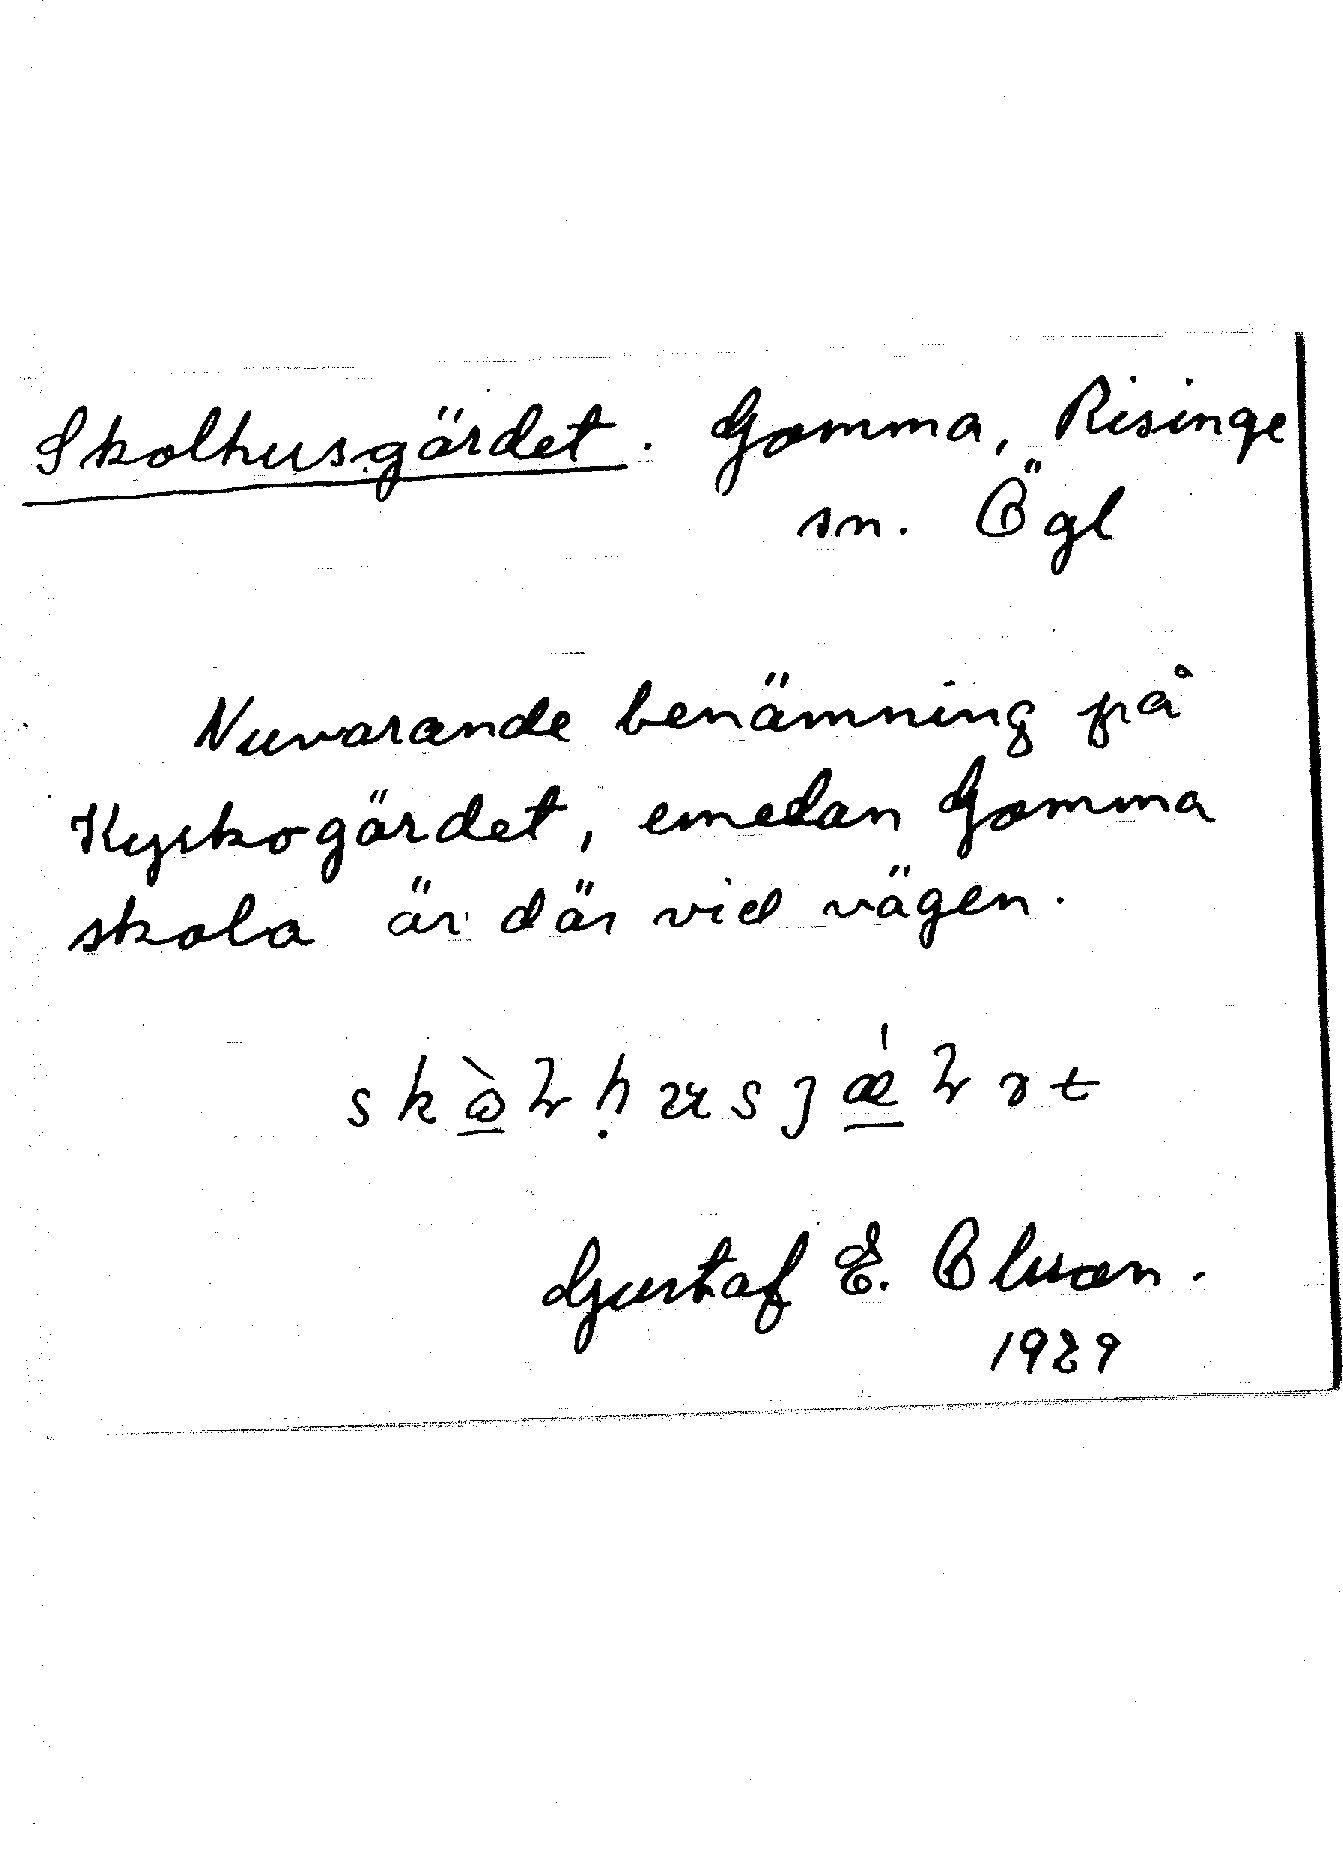 Skolhusgärdet. Gomma, Risinge
sn. Ögl
Nuvarande benämning på
Kyrkogärdet, emedan Gomma
skola är där vid vägen.
Gustaf E. Olsson.
1929